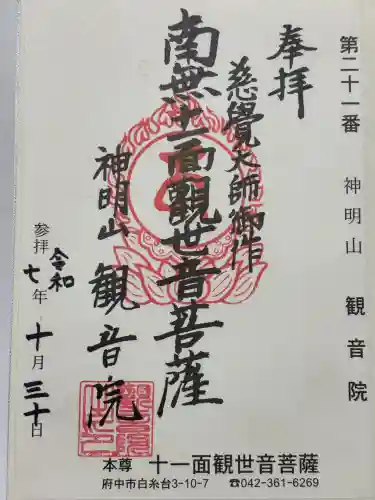 第二十一番 神明山 観音院
奉拝
慈覺大師御作
南無十一面觀世音菩薩
神明山 観音院
令和
参拝 七年 十月 三十日
本尊 十一面観世音菩薩
府中市白糸台3-10-7 ☎042-361-6269